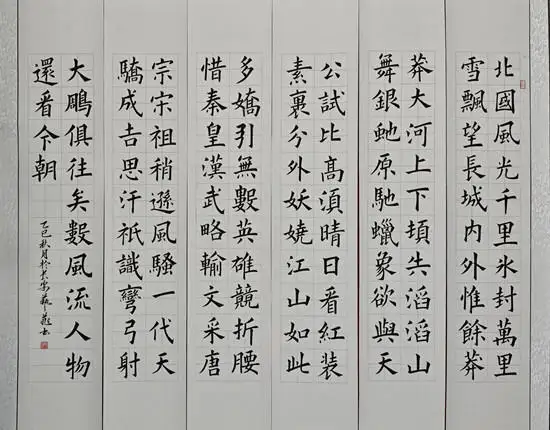 北國風光千里氷封萬里
雪飄望長城内外惟餘莽
莽大河上下頓失滔滔山
舞銀虵原馳蠟象欲與天
公試比髙須晴日看紅装
素裹分外妖嬈江山如此
多嬌引無數英雄競折腰
惜秦皇漢武略輸文采唐
宗宋祖稍遜風騷一代天
驕成吉思汗祇識彎弓射
大鵰俱往矣數風流人物
還看今朝
乙巳秋月於長安